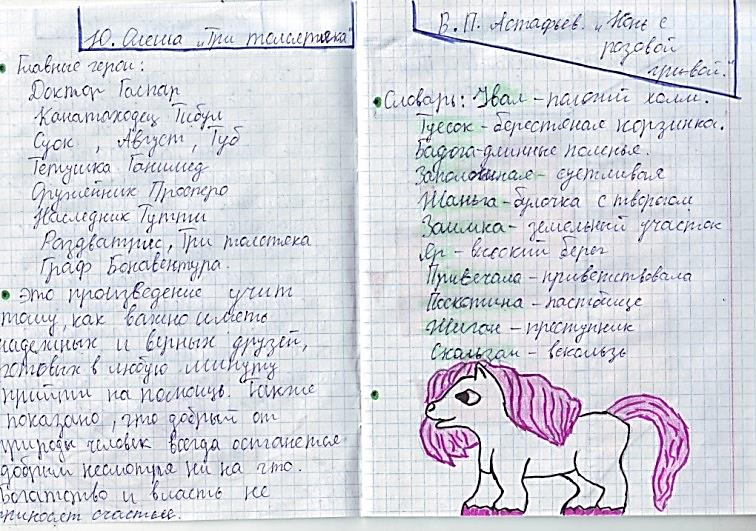 Ю. Олеша „Три толстяка"
Главные герои:
Доктор Гаспар
Канатоходец Тибул
Суок, Август, Туб
Тетушка Ганимед
Оружейник Просперо
Наследник Тутти
Раздватрис, Три толстяка
Граф Бонавентура.
Это произведение учит
тому, как важно иметь
надежных и верных друзей,
готовых в любую минуту
прийти на помощь. Также
показано, что добрый от
природы человек всегда останется
добрым несмотря ни на что.
Богатство и власть не
приносят счастье.
В. П. Астафьев. „Конь с
розовой
гривой."
Словарь: Увал – пологий холм.
Туесок – берестяная корзинка.
Бадога – длинные поленья.
Заполошная – суетливая
Шаньга – булочка с творогом
Заимка – земельный участок
Яр – высокий берег
Привечала – приветствовала
Поскотина – пастбище
Жиган – преступник
Скользом – вскользь